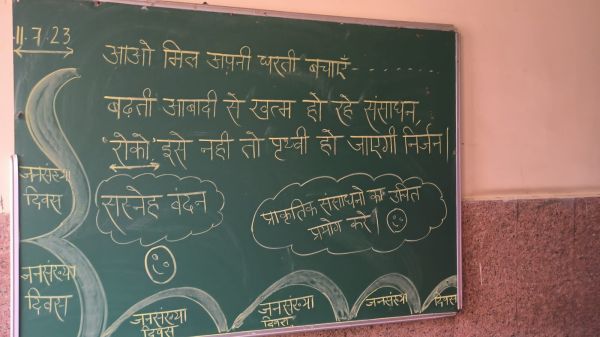 11.7.23
आओ मिल अपनी धरती बचाएँ
बढ़ती आबादी से खत्म हो रहे संसाधन,
'रोको' इसे नही तो पृथ्वी हो जाएगी निर्जन।
जनसंख्या
दिवस
सस्नेह वंदन
प्राकृतिक संसाधनो का उचित
प्रयोग करे।
जनसंख्या
दिवस
जनसंख्या
दिवस
जनसंख्या
दिवस
जनसंख्या
दिवस